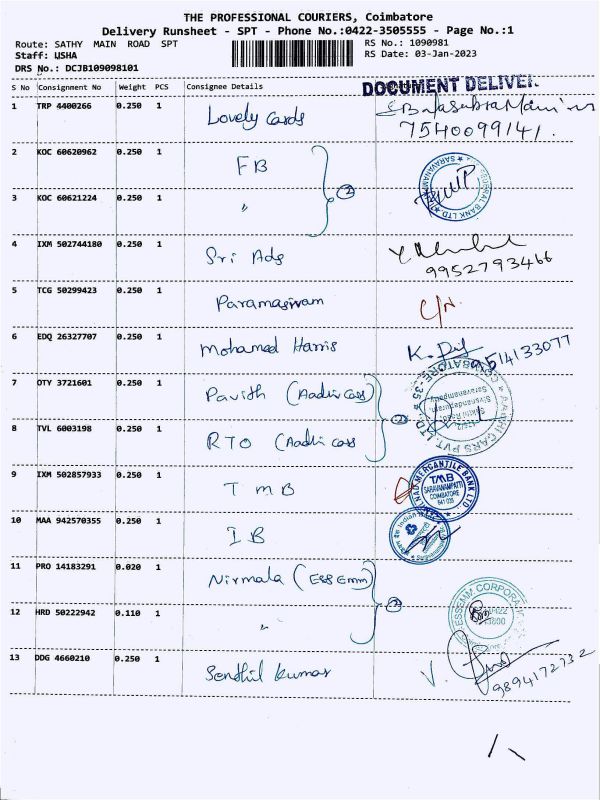 THE PROFESSIONAL COURIERS, Coimbatore
Delivery Runsheet - SPT - Phone No.:0422-3505555 - Page No.:1
Route: SATHY MAIN ROAD SPT RS No.: 1090981
Staff: USHA RS Date: 03-Jan-2023
DRS No.: DCJB109098101
DOCUMENT DELIVER
S No Consignment No Weight PCS Consignee Details
1 TRP 4400266 0.250 1 Lovely Cards
7540099141.
2 KOC 60620962 0.250 1 FB
3 KOC 60621224 0.250 1 "
4 IXM 502744180 0.250 1 Sri Ads
9952793466
5 TCG 50299423 0.250 1 Paramasivam C/N.
6 EDQ 26327707 0.250 1 Mohamed Harris
9514133077
7 OTY 3721601 0.250 1 Pavith (Aadhi Cars)
8 TVL 6003198 0.250 1 RTO (Aadhi Cars
9 IXM 502857933 0.250 1 TMB
TMB
SARAVANAMPATTI
COIMBATORE
641 035
10 MAA 942570355 0.250 1 IB
11 PRO 14183291 0.020 1 Nirmala (Ess Emm)
12 HRD 50222942 0.110 1 "
13 DDG 4660210 0.250 1 Sendhil kumar
9894172732